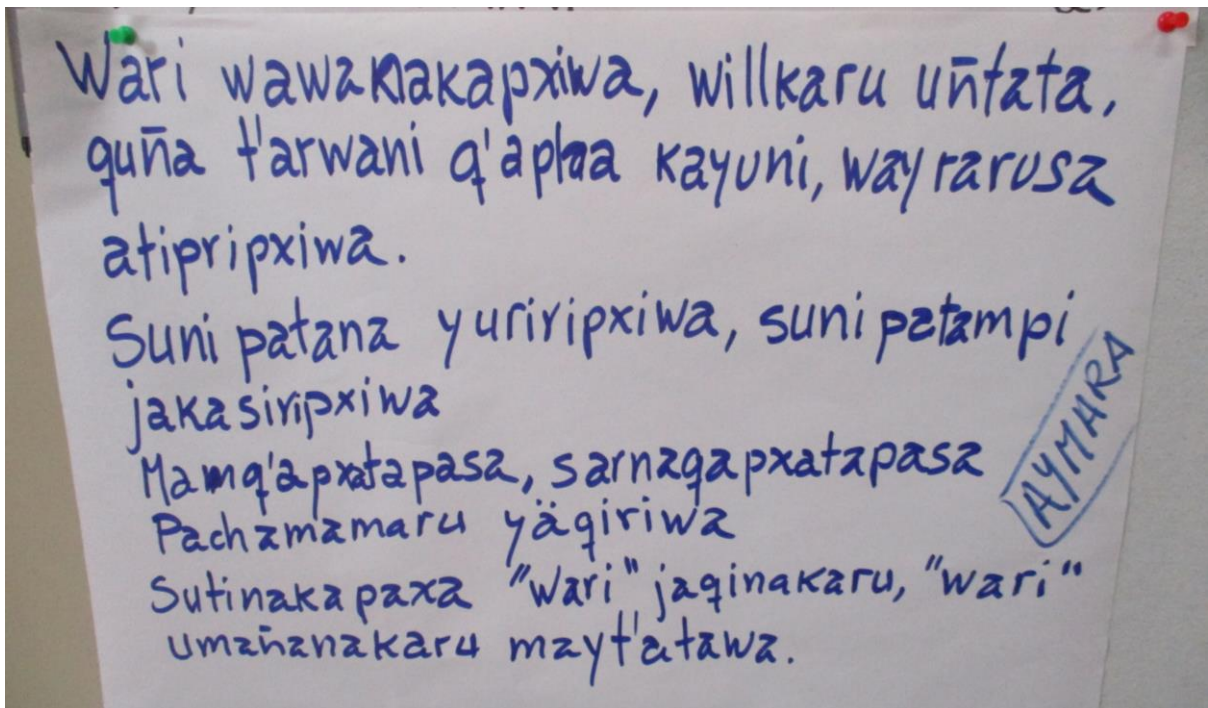 Wari wawanakapxiwa, willkaru uñtata,
quña t'arwani q'aphaa kayuni, wayrarusa
atipripxiwa.
Suni patana yuriripxiwa, suni patampi
jakasiripxiwa
Manq'apxatapasa, sarnaqapxatapasa
Pachamamaru yäqiriwa
Sutinakapaxa "Wari" jaqinakaru, "wari"
umañanakaru mayt'atawa.
AYMARA